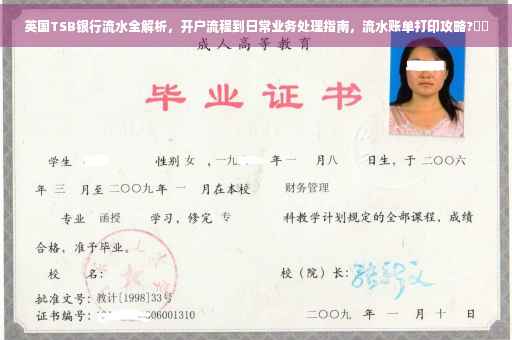 英国TSB银行流水全解析，开户流程到日常业务处理指南，流水账单打印攻略?
成人高等教育
毕业证书
学生 性别 女 ，一九 年一 月八 日生，于二〇〇六
年 三 月至二〇〇九年 一 月在本校 财务管理
专业 函授 学习，修完 专 科教学计划规定的全部课程，成绩
合格，准予毕业。
校 名： 校（院）长：
批准文号：教计[1998]33号
证书编号： 06001310 二〇〇九 年 一 月 十 日